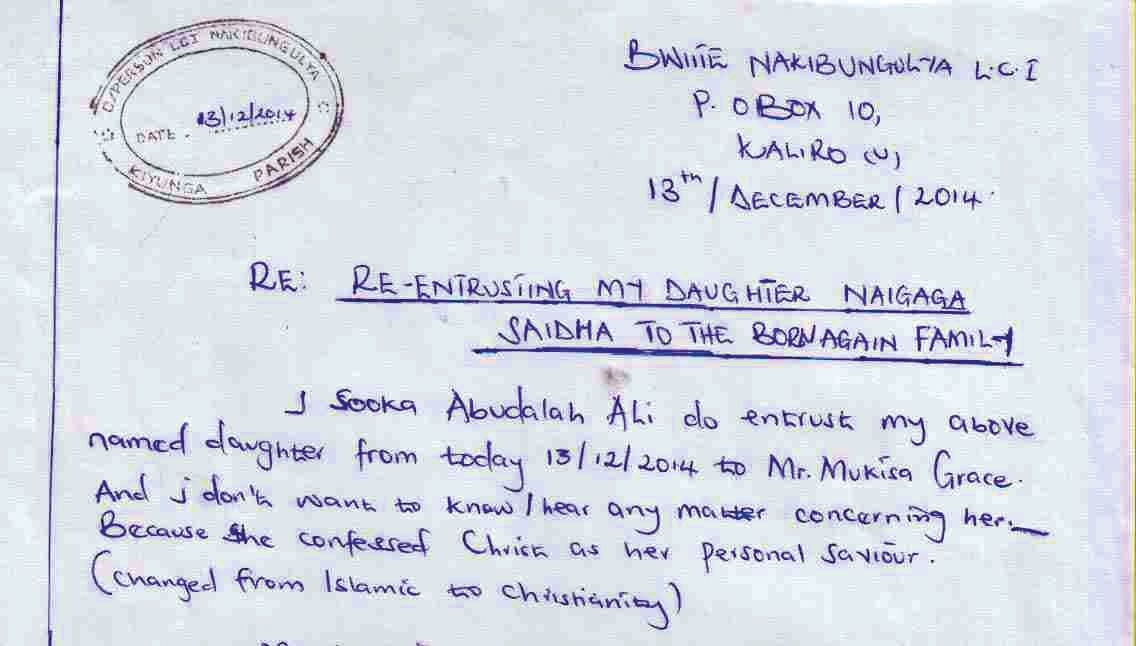 C/PERSON LCI NAKIBUNGULYA
DATE. 13/12/2014
KIYUNGA PARISH
BWIITE NAKIBUNGULYA L.C.I
P. O BOX 10,
KALIRO (U)
13th / DECEMBER / 2014
RE: RE-ENTRUSTING MY DAUGHTER NAIGAGA
SAIDHA TO THE BORNAGAIN FAMILY
I Sooka Abudalah Ali do entrust my above
named daughter from today 13/12/2014 to Mr. Mukisa Grace.
And i don't want to know/hear any matter concerning her.
Because She confessed Christ as her personal saviour.
(changed from Islamic to christianity)